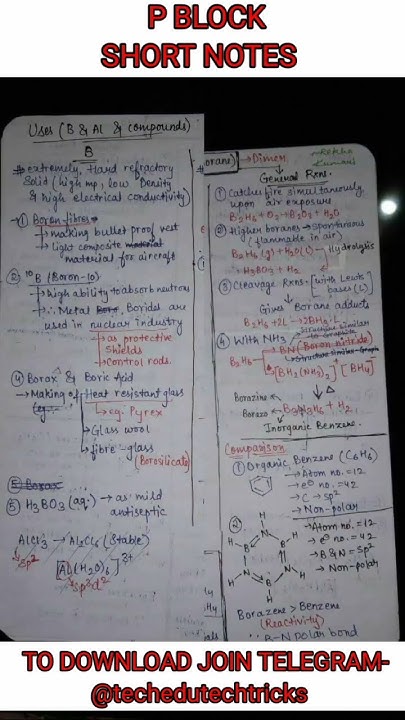 P BLOCK
SHORT NOTES
Uses (B & Al & compounds)
B
extremely, Hard refractory
Solid (high mp, low Density
& high electrical conductivity)
① Boron fibres
→ making bullet proof vest
→ light composite material
material for aircraft
② ¹⁰B (Boron-10)
→ high ability to absorb neutrons
→ ∴ Metal Borides are
used in nuclear industry
→ as protective
Shields
→ Control rods.
④ Borax & Boric Acid
→ Making of Heat resistant glass
→ eg. Pyrex
→ Glass wool
→ fibre-glass
(Borosilicate)
⑤ Borax
⑤ H₃BO₃ (aq.) → as mild
antiseptic
AlCl₃ → Al₂Cl₆ (Stable)
sp²
[Al(H₂O)₆]³⁺
sp³d²
orane) → Dimer
~Rekha
Kumari
General Rxns.
① Catches fire simultaneously
upon air exposure
B₂H₆ + O₂ → B₂O₃ + H₂O
② Higher boranes → spontaneous
(flammable in air)
B₂H₆(g) + H₂O(l) → Hydrolysis
→ H₃BO₃ + H₂
③ Cleavage Rxns → [with Lewis
bases (L)
Gives Borane adducts
B₂H₆ + 2L → 2BH₃·L
④ With NH₃
Structure similar
to Graphite
BN (Boron-nitride)
B₂H₆
[BH₂(NH₃)₂]⁺[BH₄]⁻
↓ Δ
Borazine
Borazo
B₃N₃H₆ + H₂
Inorganic Benzene.
Comparison
① Organic Benzene (C₆H₆)
→ Atom no. = 12
→ e⊖ no. = 42
→ C → sp²
→ Non-polar
②
→ Atom no. = 12
→ e⊖ no. = 42
→ B & N = sp²
→ Non-polar
Borazene > Benzene
(Reactivity)
∴ B–N polar bond
TO DOWNLOAD JOIN TELEGRAM-
@techedutechtricks